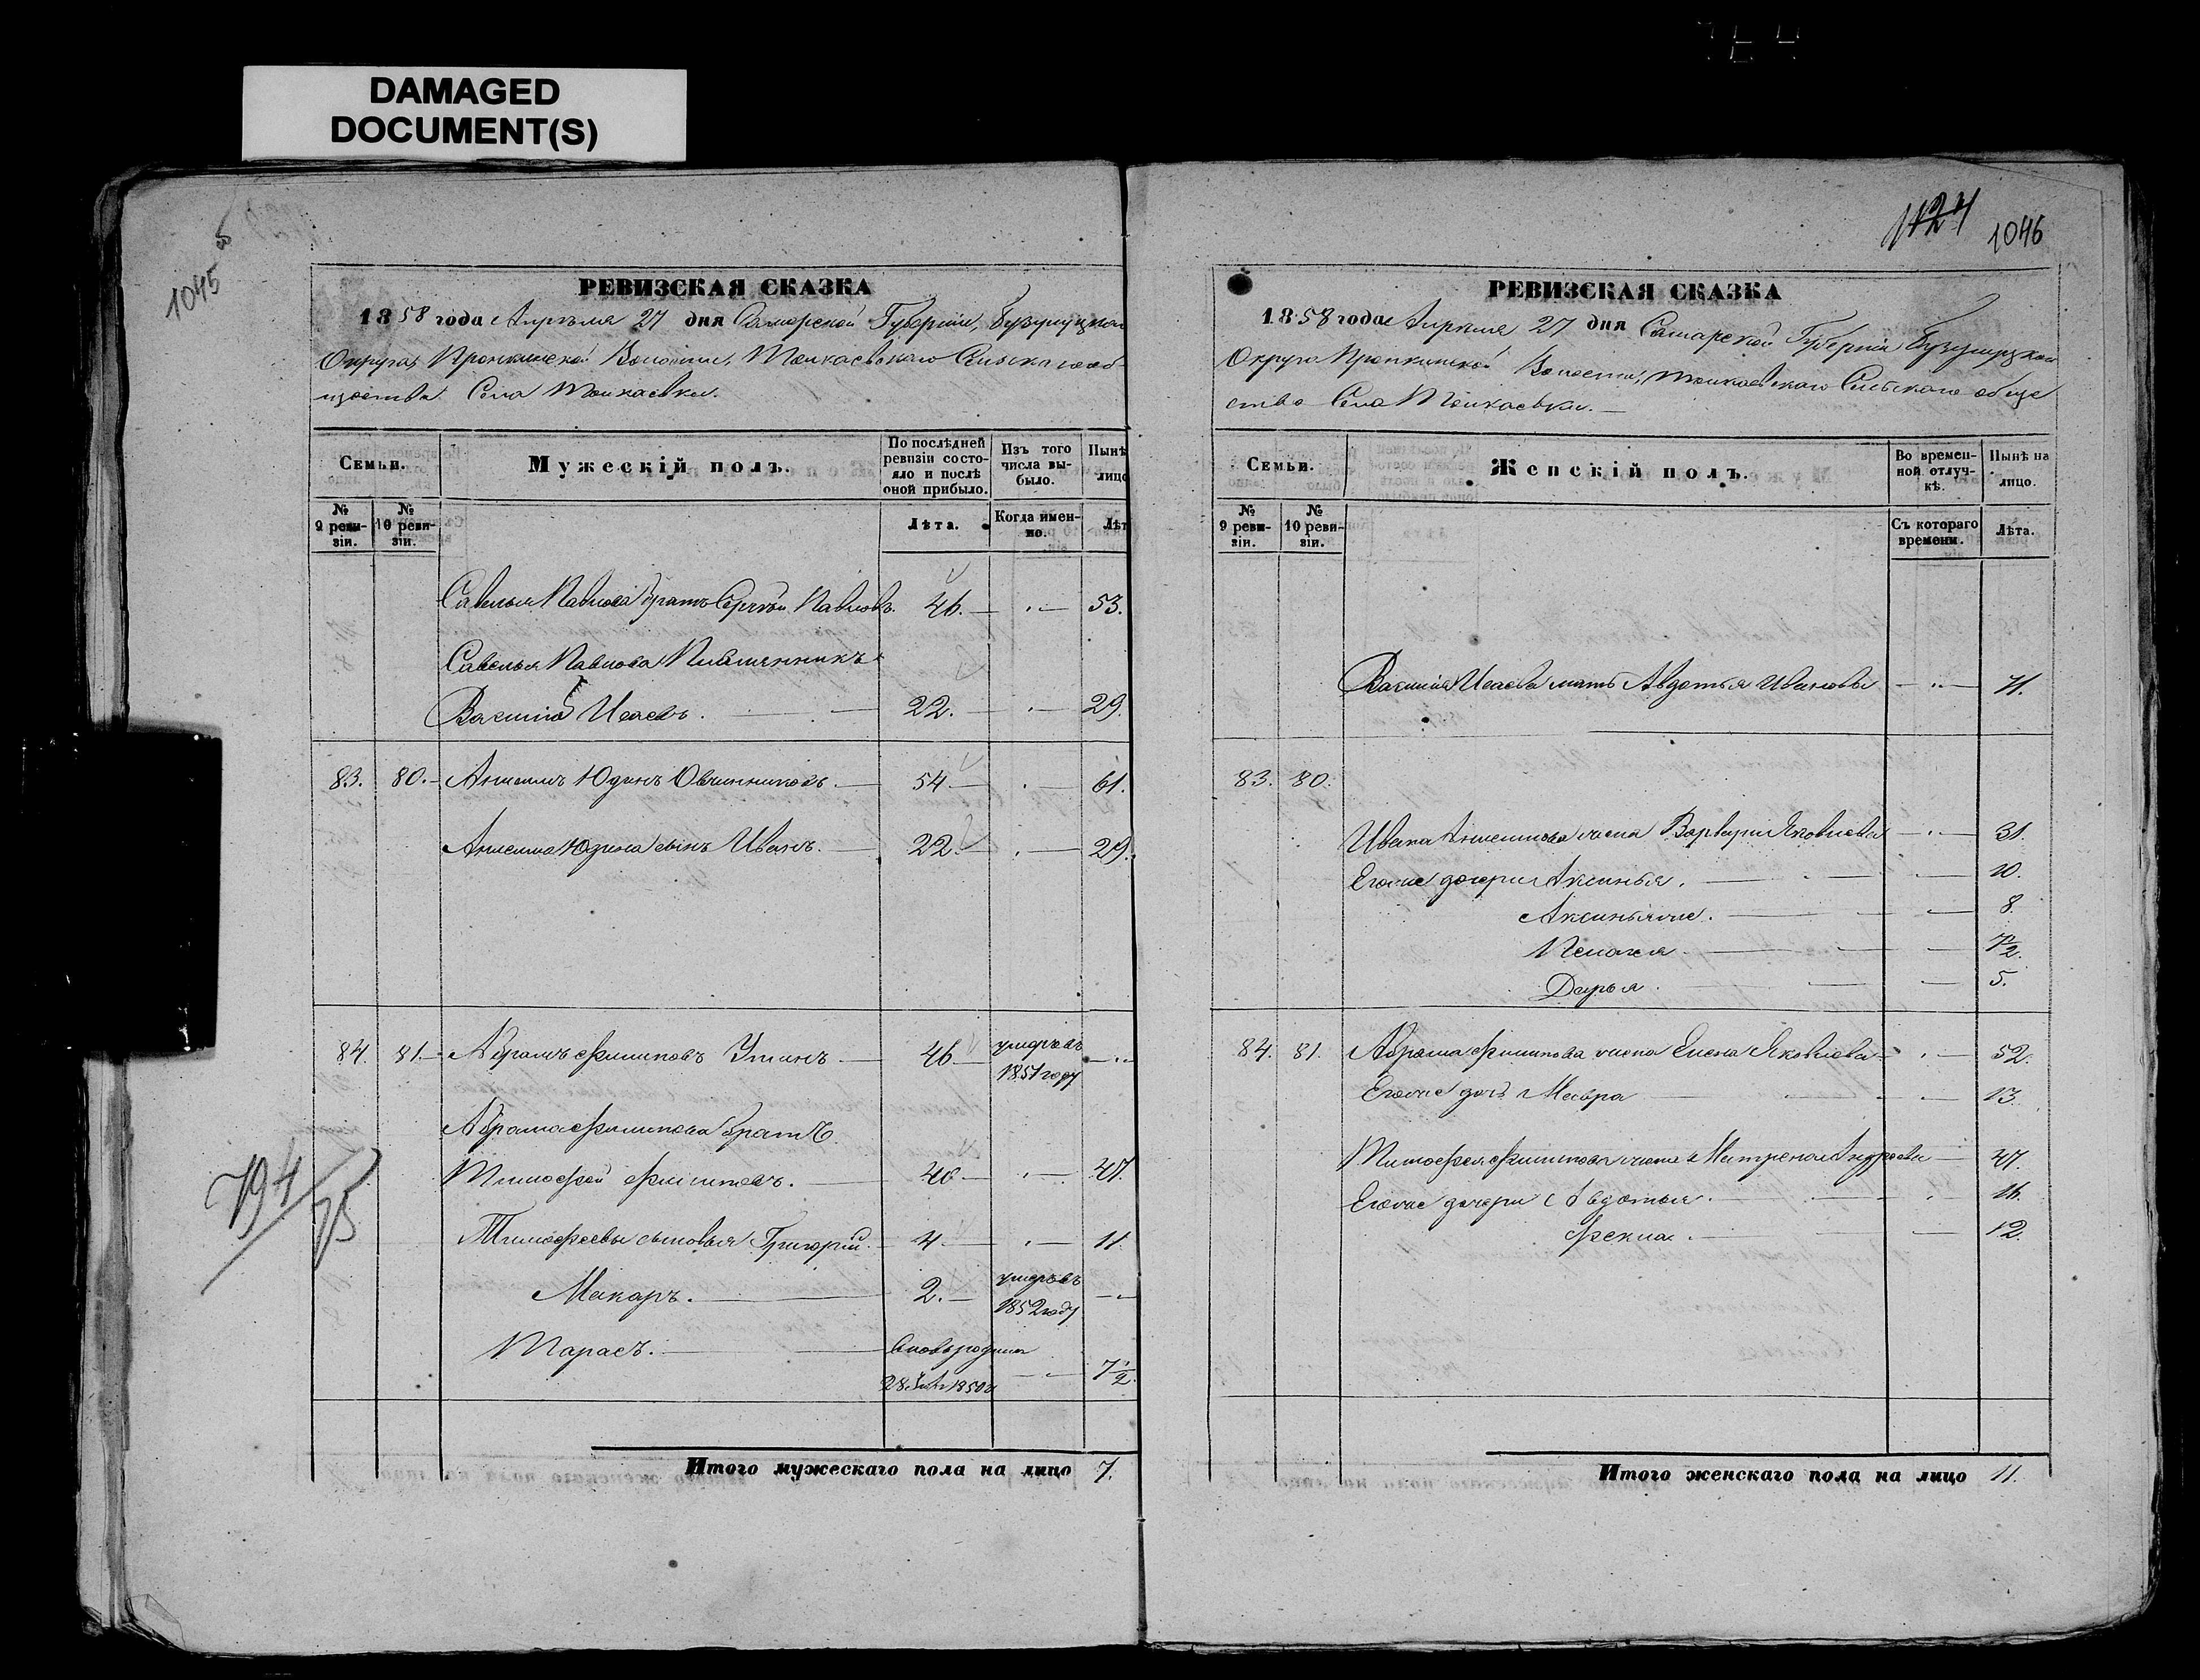 DAMAGED
DOCUMENT(S)
1045
РЕВИЗСКАЯ СКАЗКА
1858 года Апрѣля 27 дня Самарской Губерніи, Бузулуцкаго
Округа, Пронкинской Волости, Тоцкаевскаго Сельскаго об-
щества Села Тоцкаевки.
Семьи.
Мужескій полъ.
По послѣдней ревизіи состояло и послѣ оной прибыло.
Изъ того числа выбыло.
Нынѣ лицо
№ 9 ревизіи.
№ 10 ревизіи.
Лѣта.
Когда именно.
Лѣт
Савелья Павлова братъ Сергѣй Павловъ. 46. 53.
Савелья Павлова Племянникъ
Василій Исаевъ. 22. 29.
83. 80. Анисимъ Юдинъ Овчинниковъ. 54. 61.
Анисима Юдина сынъ Иванъ. 22. 29.
84. 81. Абрамъ Филиповъ 46 умеръ въ 1851 году
Абрама Филипова братъ
Тимофей Филиповъ. 40 47.
Тимофеевы сыновья Григорій. 4. 11
Макаръ. 2. умеръ въ 1852 году
Тарасъ. вновь родился 28 1850 7 1/2.
Итого мужескаго пола на лицо 7.
794
75
1124
1046
РЕВИЗСКАЯ СКАЗКА
1858 года Апрѣля 27 дня Самарской Губерніи Бузулуцкаго
Округа Пронкинской Волости, Тоцкаевскаго Сельскаго обще
ства Села Тоцкаевки.
Семьи.
Женскій полъ.
Во временной отлучкѣ.
Нынѣ на лицо.
№ 9 ревизіи.
№ 10 ревизіи.
Съ котораго времени.
Лѣта.
Василія Исаева мать Авдотья Иванова 71.
83. 80.
Ивана Анисимова жена Варвара Яковлева 31.
Его же дочери Аксинья. 10.
Аксинья же. 8.
Пелагея 7 1/2.
Дарья. 5.
84. 81. Абрама Филипова жена Елена Яковлева 52.
Его же дочь Мавра 13.
Тимофея Филипова жена Матрена Андреева 47.
Его же дочери Авдотья. 16.
Фекла. 12.
Итого женскаго пола на лицо 11.